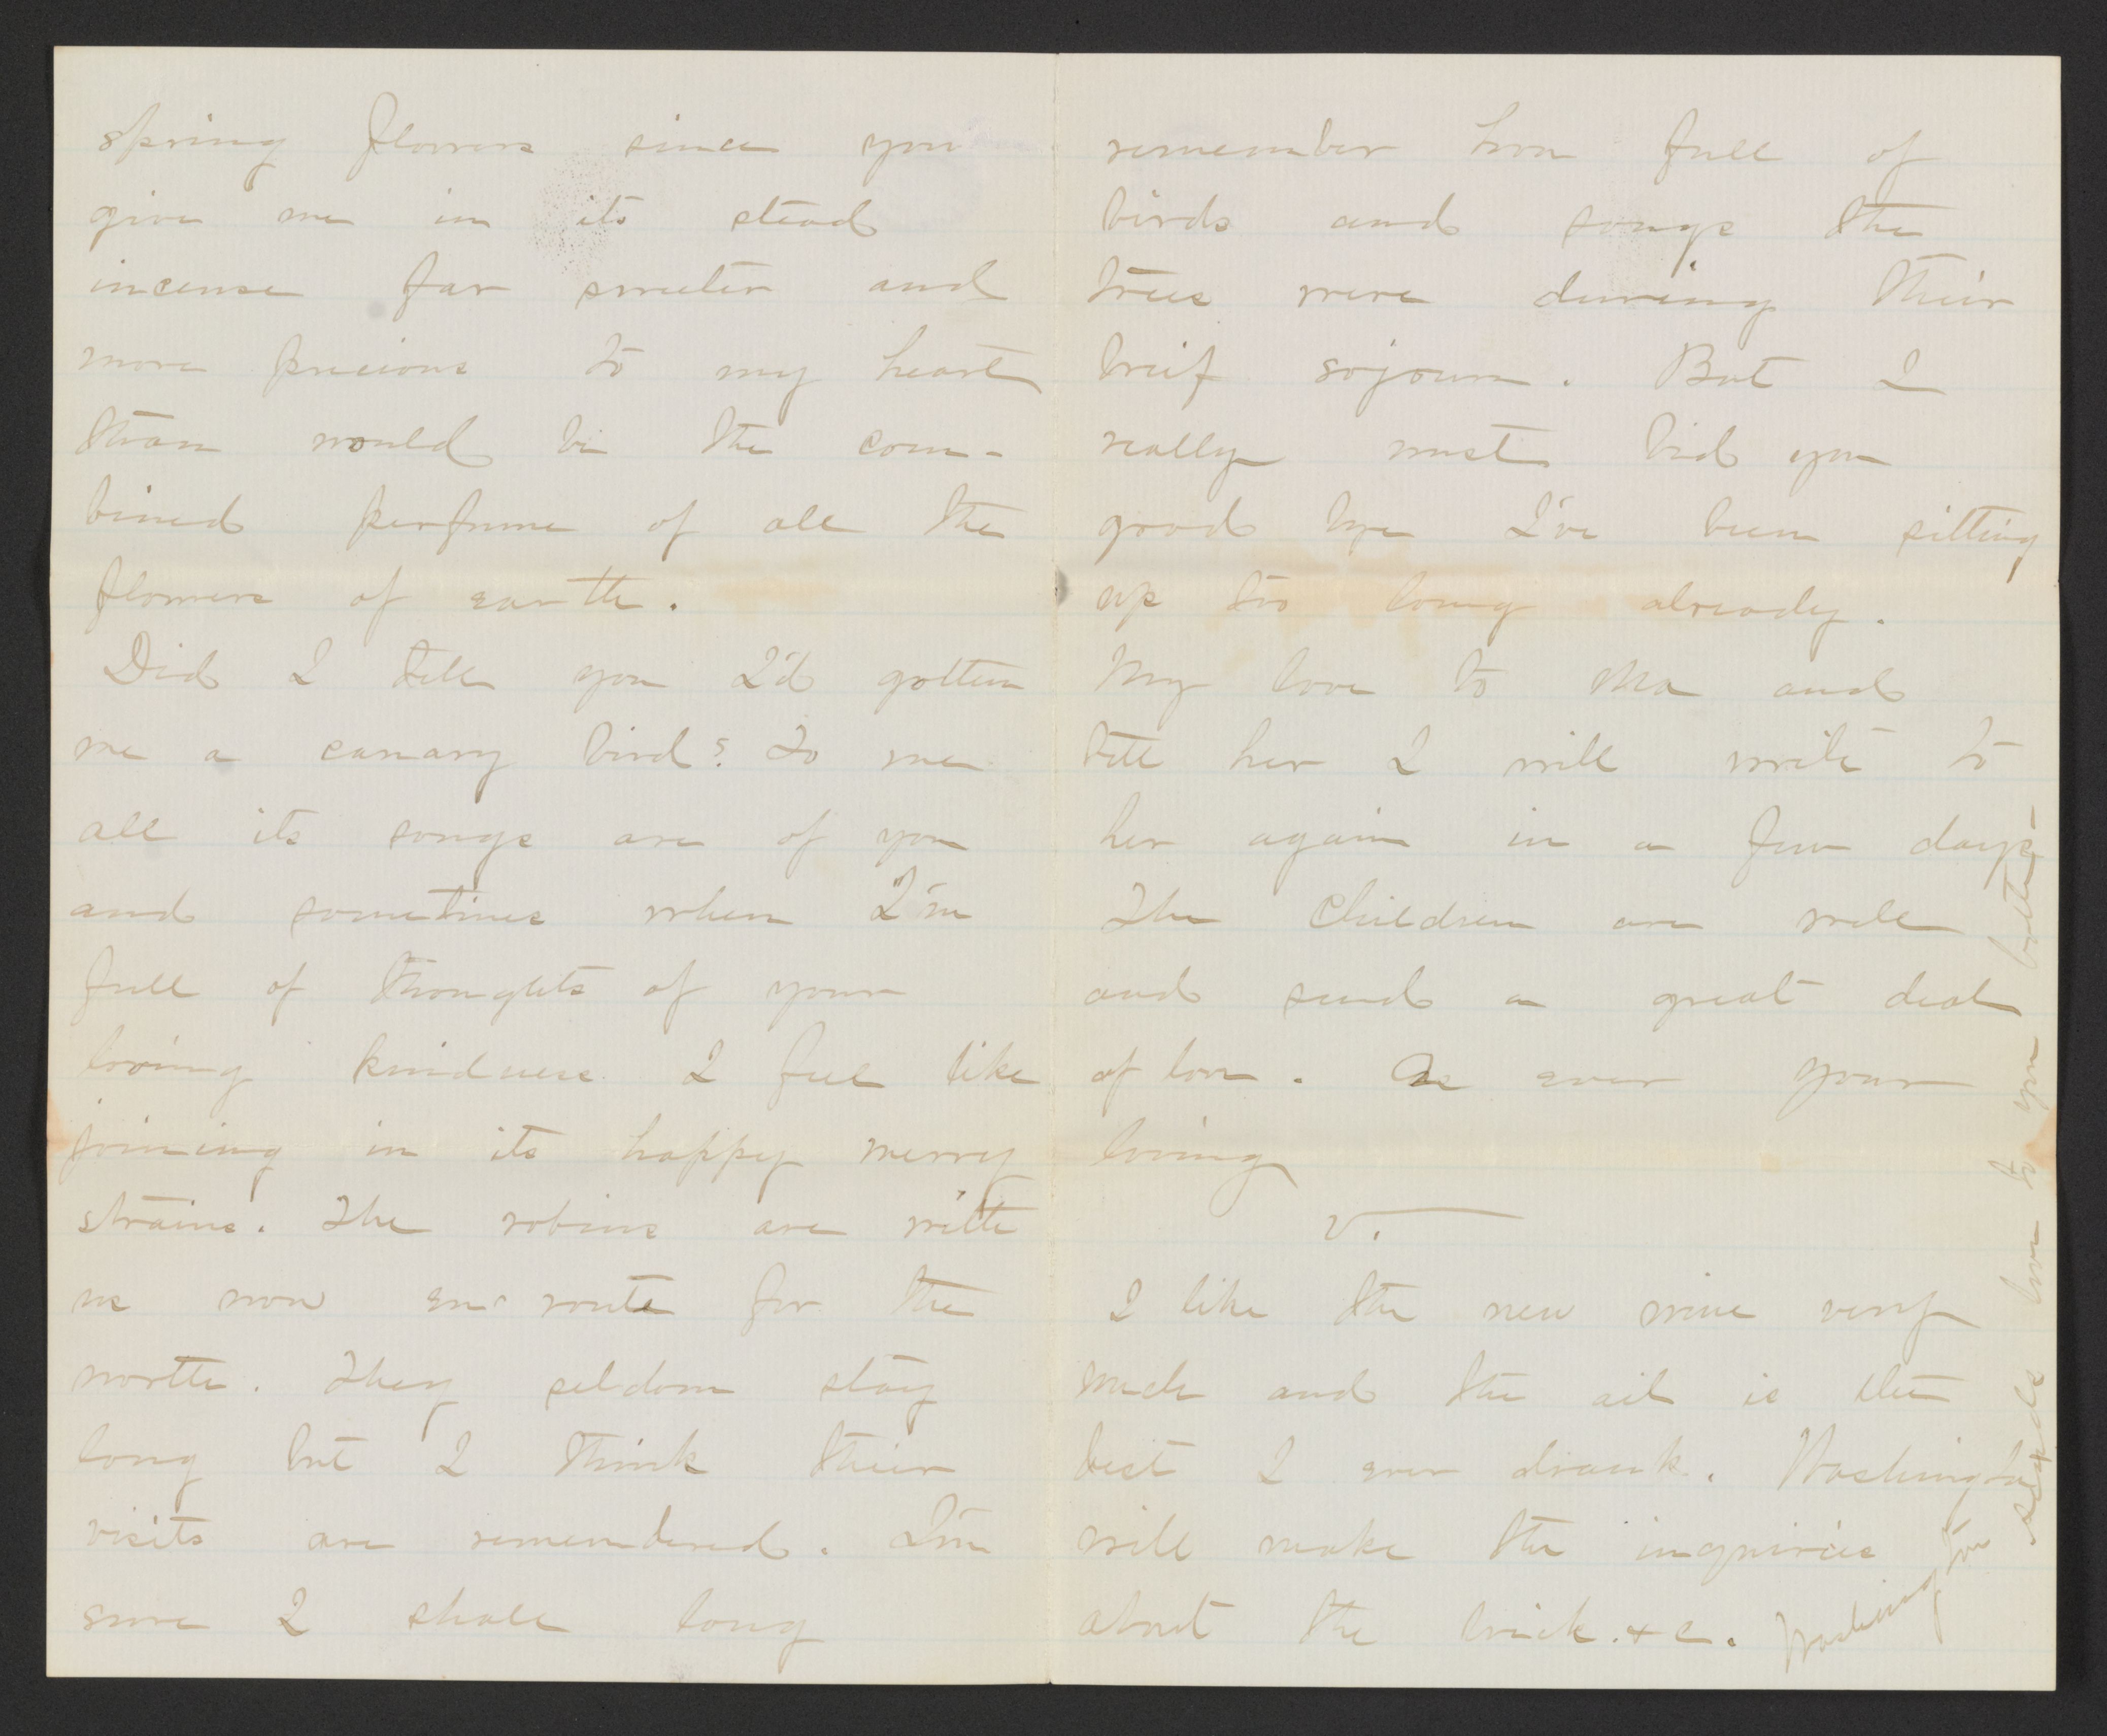 spring flowers since you
give me in its stead
incense far sweeter and
more precious to my heart
than would be the com-
bined perfume of all the
flowers of earth.
Did I tell you I'd gotten
me a canary bird? To me
all its songs are of you
and sometimes when I'm
full of thoughts of your
loving kindness I feel like
joining in its happy merry
strains. The robins are with
us now en route for the
north. They seldom stay
long but I think their
visits are remembered. I'm
sure I shall long
remember how full of
birds and songs the
trees were during their
breif sojourn. But I
really must bid you
good bye I've been sitting
up too long already.
My love to Ma and
tell her I will write to
her again in a few days-
The children are well
and send a great deal
of love. As ever your
loving
V.
I like the new wine very
much and the ail is the
best I ever drank. Washington
will make the inquiries
about the brick. &c. Washington
sends love to you both-